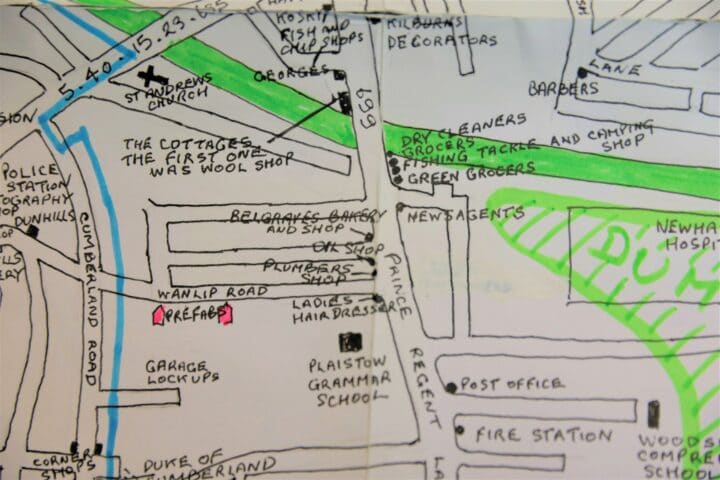 KOSKI
FISH AND
CHIP SHOPS
KILBURNS
DECORATORS
5.40.15.23.655
GEORGES
ST ANDREWS
CHURCH
699
LANE
BARBERS
THE COTTAGES
THE FIRST ONE
WAS WOOL SHOP
DRY CLEANERS
GROCERS
FISHING TACKLE AND CAMPING
SHOP
GREEN GROCERS
POLICE
STATION
DUNHILLS
BELGRAVES BAKERY
AND SHOP
NEWSAGENTS
OIL SHOP
PLUMBERS
SHOP
WANLIP ROAD
PREFABS
LADIES
HAIRDRESSER
CUMBERLAND ROAD
PRINCE
REGENT
LA
NEWHA
HOSPI
DUM
GARAGE
LOCKUPS
PLAISTOW
GRAMMAR
SCHOOL
POST OFFICE
FIRE STATION
WOODSI
COMPRE
SCHOOL
CORNER
SHOPS
DUKE OF
CUMBERLAND